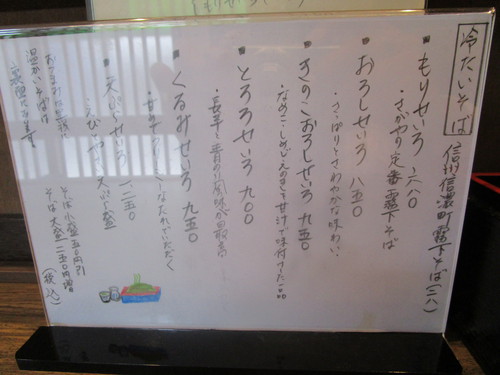 冷たいそば
信州信濃町霧下そば(二八)
■もりせいろ 六八〇
・さがやの定番霧下そば
■おろしせいろ 八五〇
・さっぱりとさわやかな味わい
■きのこおろしせいろ 九五〇
・なめこ・しめじ・えのきを甘汁で味付けした一品
■とろろせいろ 九〇〇
・長芋と青のりの風味が最高
■くるみせいろ 九五〇
・甘めでクリーミーなたれでいただく
■天ぷらせいろ 一二五〇
・えびややさい天ぷら盛
そば小盛 五〇円引
そば大盛 二五〇円増
(税込)
温かいそばは
裏側にあります